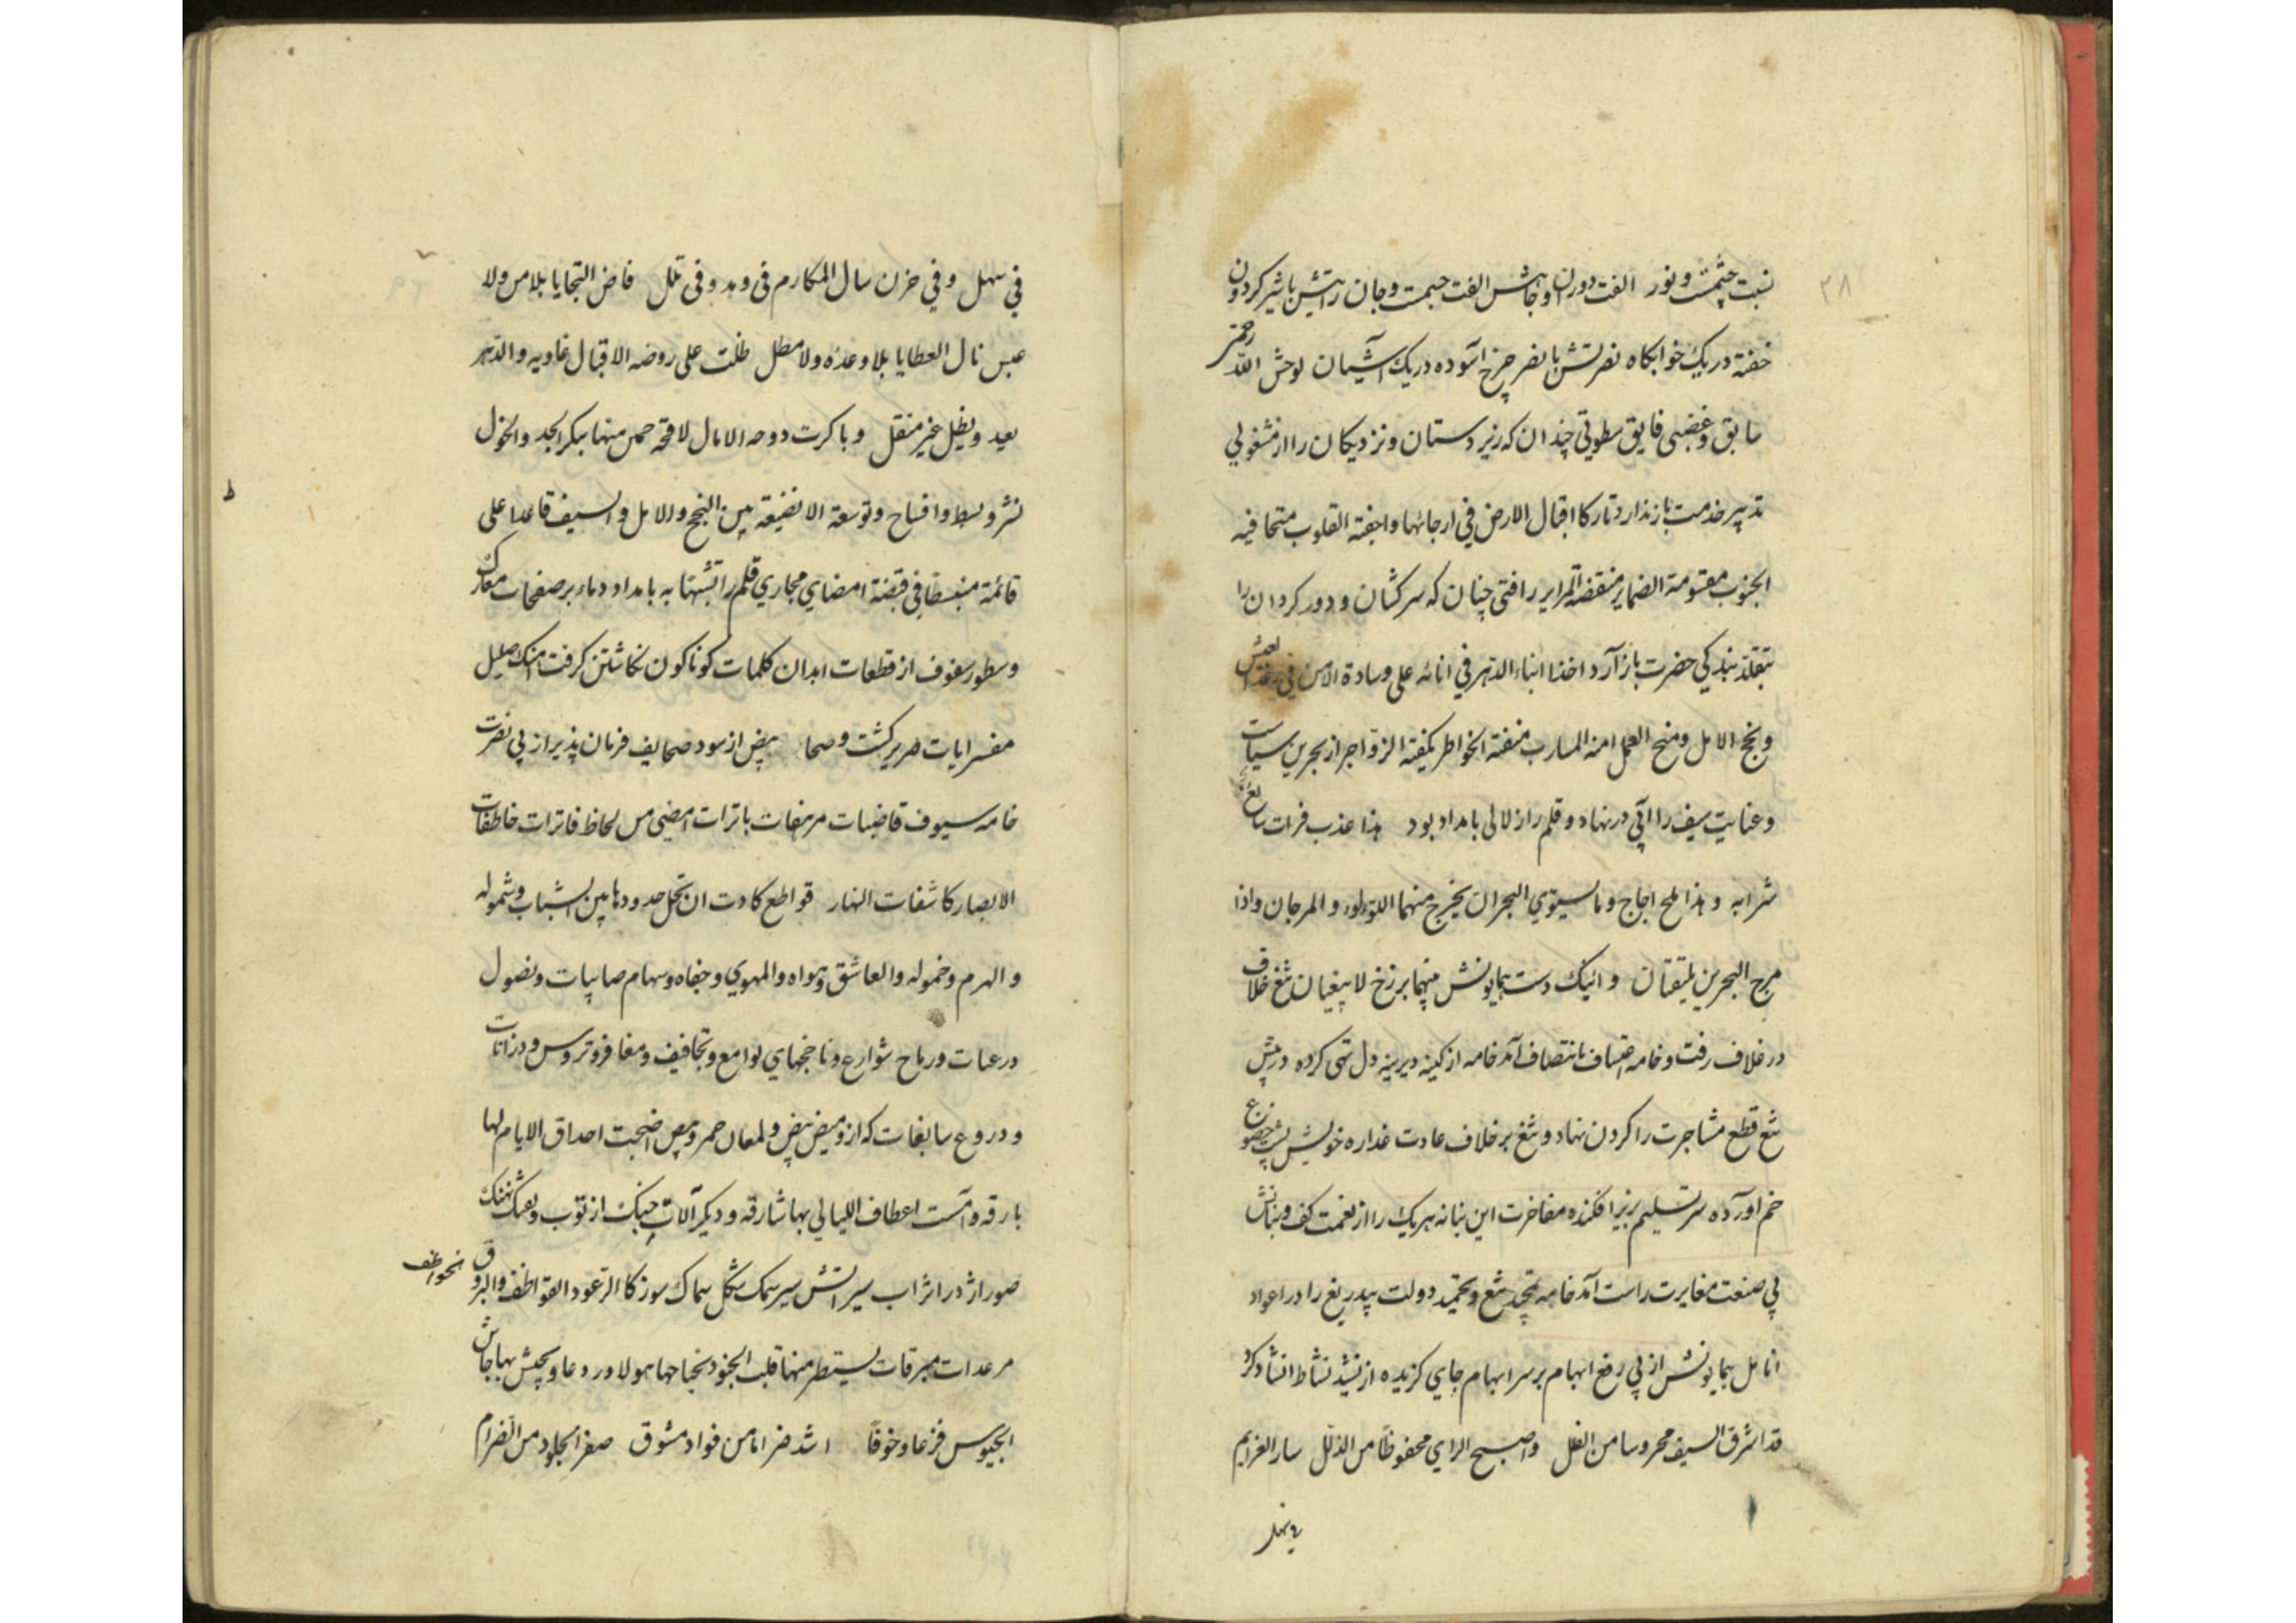 ۳۸
نسبت چشمت و نور الفت دوران اوجاهش الفت جسمت و جان راتیش باشیر کردون
خفته در یک خوابکاه نصرتش با نصر چرخ آسوده در یک آشیان لوحش الله رحمتی
سابق و غضبی فایق سطوتی چندان که زیردستان و نزدیکان را از مشغولی
تدبیر خدمت باز ندارد تارکا اقبال الارض فی ارجائها واجفة القلوب متجافیه
الجنوب مقسومة الضمایر منقضة المرایر رافتی چنان که سرکشان و دورکردان را
بتقلد بندکی حضرت باز آرد اخذا ابناء الدهر فی اناته علی وسادة الامن فی رغد العیش
و نجح الامل و منح العمل امنة المسارب منفتة الخواطر مکیفته الزواجر از بحرین سیاست
و عنایت سیف را آبی در نهاد و قلم را زلالی بامداد بود هذا عذب فرات سائغ
شرابه و هذا ملح اجاج و ما یستوی البحران یخرج منهما اللؤلؤ و المرجان و اذا
مرج البحرین یلتقیان و اینک دست همایونش بینهما برزخ لا یبغیان تیغ خلاف
در غلاف رفت و خامه اعتساف بانتصاف آمد خامه از کینه دیرینه دل تهی کرده در پیش
تیغ قطع مشاجرت را کردن نهاد و تیغ بر خلاف عادت غداره خویش پشت خضوع
خم آورده سر تسلیم بزیر افکنده مفاخرت این بنانه هریک را از نعمت کف و بنانش
پی صنعت مغایرت راست آمد خامه بتحمید تیغ و تحمید دولت بیدریغ را در اعواد
انامل همایونش از پی رفع ابهام بر سر ابهام جای کزیده از نشید نشاط انشاد کرد
قد اشرق السیف محروسا من الفلل و اصبح الرای محفوظا من الذلل سار العزایم
فی سهل
فی سهل و فی حزن سال المکارم فی وهد و فی تلل فاض السجایا بلا من ولا
عبس نال العطایا بلا وعده ولا مطل طلت علی روضه الاقبال غادیه و الدهر
بعید و یظل غیر منتقل و باکرت دوحه الامال لاقحة حمی منها ببکر الجد و الخول
نشر و بسط و افساح و توسعة الا نضیقه بین النجح و الامل و السیف قاعدا علی
قائمة منبسطا فی قبضة امضای مجاری قلم را تشبها به بامداد دماء بر صفحات معارک
و سطور صفوف از قطعات ابدان کلمات کوناکون نکاشتن کرفت اینک اصلیل
مفسر ایات صریر کشت و صحا بیض از سود صحایف فرمان پذیر از پی نصرت
خامه سیوف قاضبات مرهفات باترات امضی من لحاظ فاترات خاطفات
الابصار کاشفات النهار قواطع کادت ان تحل حدودها بین الشباب و شموله
و الهرم و خموله و العاشق و هواه و المهوی و جفاه و سهام صایبات و نصول
درعات و رماح شوارع و ناخجهای لوامع و تجافیف و مغافر و تروس و درانات
و دروع سابغات که از ومیض بیض و لمعان حمر و بیض اضحت احداق الایام لها
بارقه و امست اعطاف اللیالی بها شارقه و دیکر آلات جنک از توپ و تفنک نهنک
صور اژدر اثر آب سیر آتش سیر سمک شکل سماک سوز کا الرعود القواصف و البروق الخواطف
مرعدات مبرقات یستطیر منها قلب الجنود بجناحها هولا و روعا و یجیش بها جاش
الجیوش فزعا و خوفا اشد ضراما من فواد مشوق صفر الجلود من الضرام